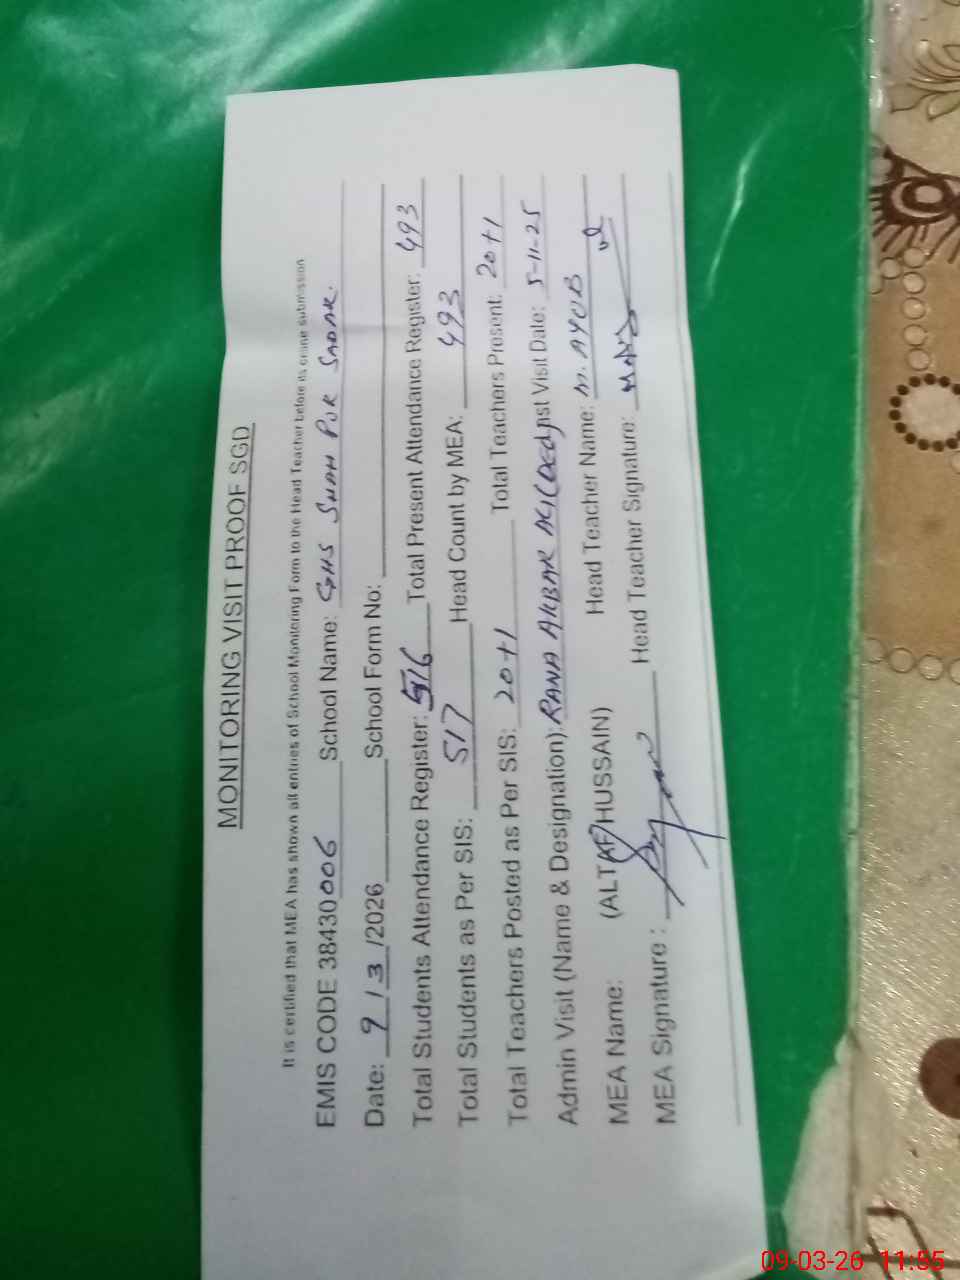 MONITORING VISIT PROOF SGD
It is certified that MEA has shown all entries of School Monitoring Form to the Head Teacher before its online submission
EMIS CODE 38430006 School Name: GHS SHAH PUR SADAR.
Date: 9/3/2026 School Form No:
Total Students Attendance Register: 516 Total Present Attendance Register: 493
Total Students as Per SIS: 517 Head Count by MEA: 493
Total Teachers Posted as Per SIS: 20+1 Total Teachers Present: 20+1
Admin Visit (Name & Designation): RANA AKBAR ALI (DEO) Last Visit Date: 5-11-25
MEA Name: (ALTAF HUSSAIN) Head Teacher Name: M. AYUB
MEA Signature : Head Teacher Signature:
09-03-26 11:55